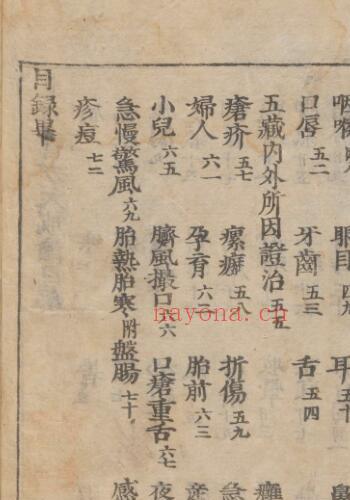 咽喉四八 眼目四九 耳五十 鼻
口唇五二 牙齒五三 舌五四
五藏內外所因證治五五 癰
瘡疥五七 瘰癧五八 折傷五九 急
婦人六一 孕育六二 胎前六三 産
小兒六五 臍風撮口六六 口瘡重舌六七 夜
急慢驚風六九 胎熱胎寒附盤腸七十 感
疹痘七二
目錄畢
hayona.cn